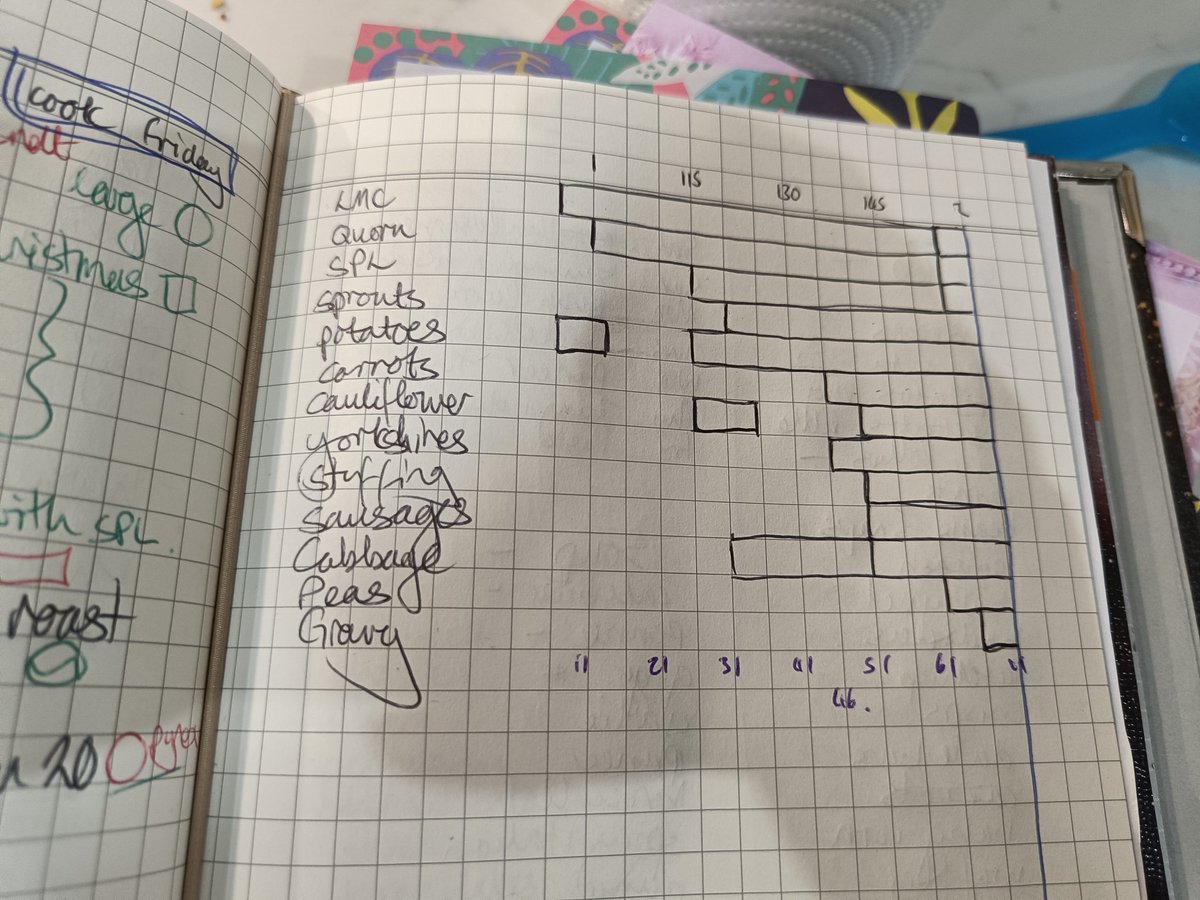 cook friday
melt
Large
ristmas
with SPL.
roast
20 Pyrex
1 115 130 145 2
LMC
Quorn
SPL
sprouts
potatoes
carrots
cauliflower
yorkshires
Stuffing
Sausages
Cabbage
Peas
Gravy
11 21 31 41 51 61
46.